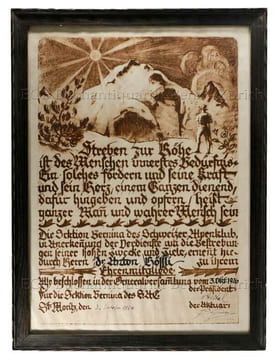 Streben zur Höhe
ist des Menschen innerstes Bedürfnis
Ein solches fördern und seine Kraft
und sein Herz, einem Ganzen dienend,
dafür hingeben und opfern, heißt
ganzer Mann und wahrer Mensch sein
Die Sektion Bernina des Schweizer Alpenklub,
in Anerkennung der Verdienste um die Bestrebun-
gen seiner hohen Zwecke und Ziele, ernennt hier-
durch Herrn Dr. Anton zu ihrem
Ehrenmitgliede.
Also beschlossen in der Generalversammlung vom
Für die Sektion Bernina des S.A.C. der Präsident
St. Moritz, den der Aktuar: